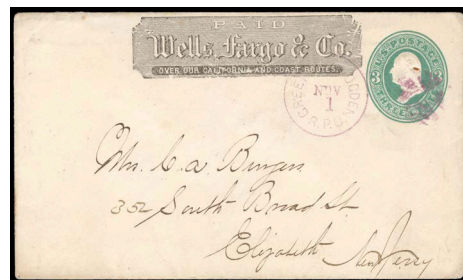 PAID
Wells, Fargo & Co.
OVER OUR CALIFORNIA AND COAST ROUTES.
U.S. POSTAGE
3 3
THREE CENTS
GREEN OGDEN
NOV
1
R.P.O.
Mrs. C. A. Burgess
352 South Broad St
Elizabeth New Jersey